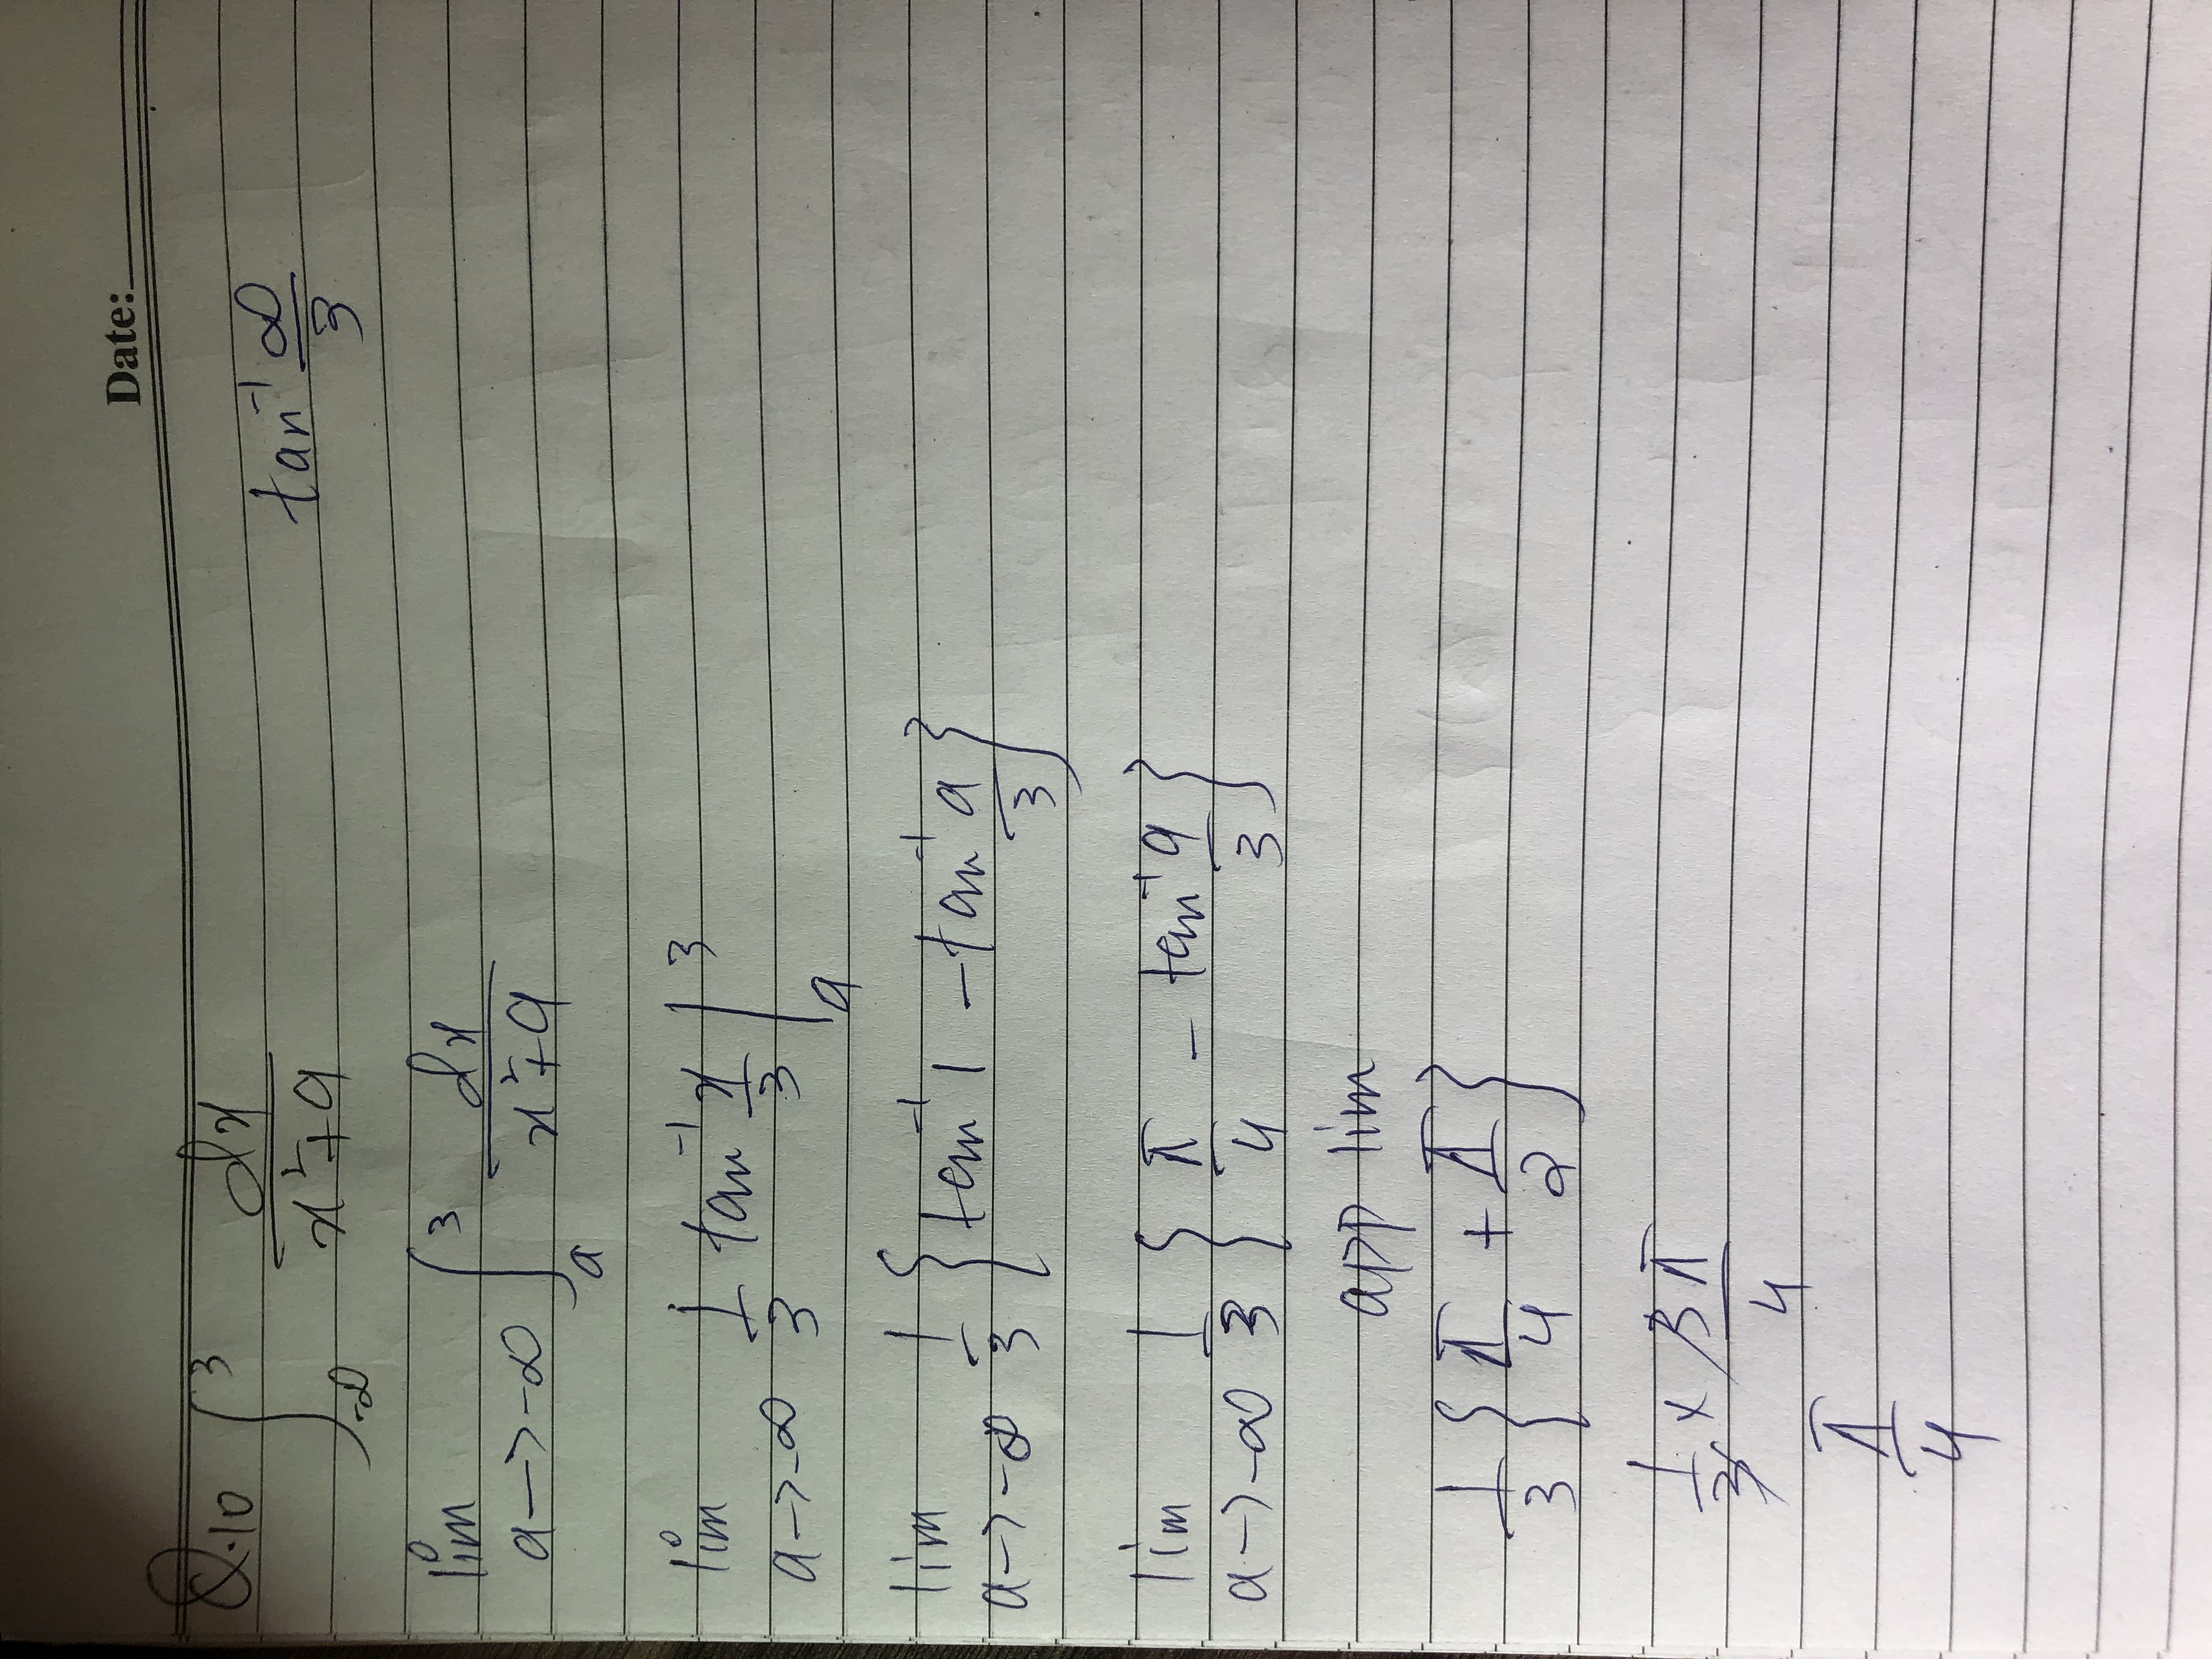 Date:
Q.10 ∫_{-∞}^{3} dx/(x²+9)
tan⁻¹ ∞/3
lim a→-∞ ∫_{a}^{3} dx/(x²+9)
lim a→-∞ 1/3 tan⁻¹ x/3 |_{a}^{3}
lim a→-∞ 1/3 {tan⁻¹ 1 - tan⁻¹ a/3}
lim a→-∞ 1/3 {π/4 - tan⁻¹ a/3}
app lim
1/3 {π/4 + π/2}
1/3 × 3π/4
π/4